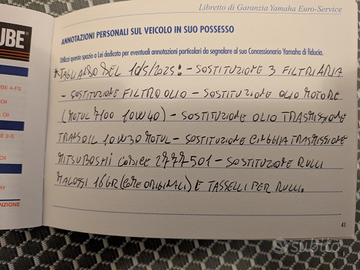 Libretto di Garanzia Yamaha Euro-Service
ANNOTAZIONI PERSONALI SUL VEICOLO IN SUO POSSESSO
Utilizzi questo spazio a Lei dedicato per eventuali annotazioni particolari da segnalare al suo Concessionario Yamaha di fiducia.
TAGLIANDO DEL 10/5/2025: - SOSTITUZIONE 3 FILTRI ARIA
- SOSTITUZIONE FILTRO OLIO - SOSTITUZIONE OLIO MOTORE
(MOTUL 7100 10W40) - SOSTITUZIONE OLIO TRASMISSIONE
TRANSOIL 10W30 MOTUL - SOSTITUZIONE CINGHIA TRASMISSIONE
MITSUBOSHI CODICE 2777-501 - SOSTITUZIONE RULLI
MALOSSI 16GR (COME ORIGINALI) E TASSELLI PER RULLI.
41
UBE
subito